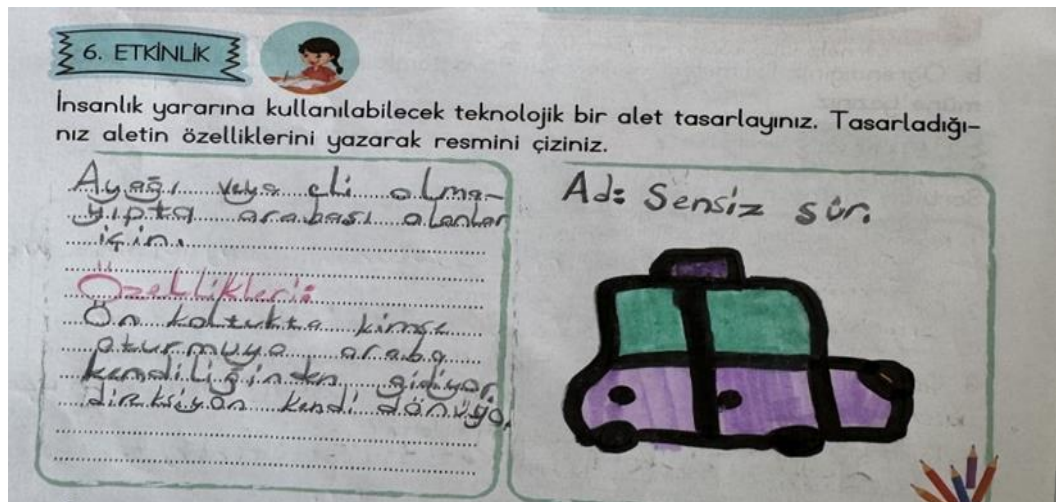 6. ETKİNLİK
İnsanlık yararına kullanılabilecek teknolojik bir alet tasarlayınız. Tasarladığı-
nız aletin özelliklerini yazarak resmini çiziniz.
Ayağı veya eli olma-
yıpta arabası olanlar
için.
Özellikleri:
Ön koltukta kimse
oturmuyo araba
kendiliğinden gidiyor
direksiyon kendi dönüyo.
Ad: Sensiz sür.